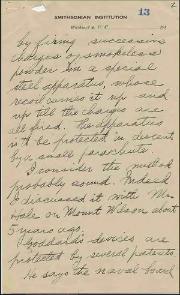 2
13
SMITHSONIAN INSTITUTION
Washington, D.C.
by firing successive
charges of smokeless
powder in a special
steel apparatus, whose
recoil carries it up and
up till the charges are
all fired. The apparatus
is to be protected in descent
by a small parachute.
I consider the method
probably sound. Indeed
I discussed it with Mr.
Hale on Mount Wilson about
5 years ago.
Goddard's devices are
protected by several patents.
He says the naval board